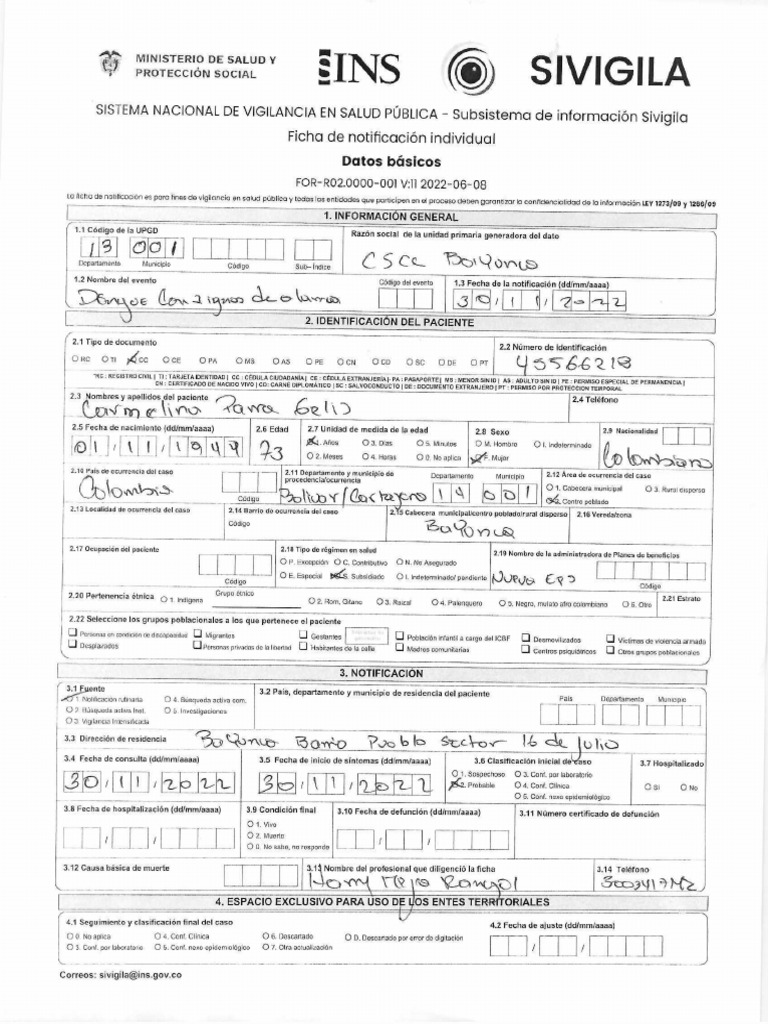 MINISTERIO DE SALUD Y
PROTECCIÓN SOCIAL
INS
SIVIGILA
SISTEMA NACIONAL DE VIGILANCIA EN SALUD PÚBLICA - Subsistema de información Sivigila
Ficha de notificación individual
Datos básicos
FOR-R02.0000-001 V:11 2022-06-08
La ficha de notificación es para fines de vigilancia en salud pública y todas las entidades que participen en el proceso deben garantizar la confidencialidad de la información LEY 1273/09 y 1266/09
1. INFORMACIÓN GENERAL
1.1 Código de la UPGD Razón social de la unidad primaria generadora del dato
13 001 CSCC Bayunca
Departamento Municipio Código Sub- Índice
1.2 Nombre del evento Código del evento 1.3 Fecha de la notificación (dd/mm/aaaa)
Dengue Con signos de alarma 30/11/2022
2. IDENTIFICACIÓN DEL PACIENTE
2.1 Tipo de documento 2.2 Número de identificación
RC TI CC CE PA MS AS PE CN CD SC DE PT 45566218
RC : REGISTRO CIVIL | TI : TARJETA IDENTIDAD | CC : CÉDULA CIUDADANÍA | CE : CÉDULA EXTRANJERÍA | PA : PASAPORTE | MS : MENOR SIN ID | AS : ADULTO SIN ID | PE : PERMISO ESPECIAL DE PERMANENCIA |
CN : CERTIFICADO DE NACIDO VIVO | CD : CARNÉ DIPLOMÁTICO | SC : SALVOCONDUCTO | DE : DOCUMENTO EXTRANJERO | PT : PERMISO POR PROTECCIÓN TEMPORAL
2.3 Nombres y apellidos del paciente 2.4 Teléfono
Carmelina Parra
2.5 Fecha de nacimiento (dd/mm/aaaa) 2.6 Edad 2.7 Unidad de medida de la edad 2.8 Sexo 2.9 Nacionalidad
01/11/1949 73 1. Años 3. Días 5. Minutos M. Hombre I. Indeterminado
2. Meses 4. Horas 0. No aplica F. Mujer Colombiana
2.10 País de ocurrencia del caso 2.11 Departamento y municipio de procedencia/ocurrencia Departamento Municipio 2.12 Área de ocurrencia del caso
Colombia Código Bolivar/Cartagena 14 001 1. Cabecera municipal 3. Rural disperso
2. Centro poblado
2.13 Localidad de ocurrencia del caso 2.14 Barrio de ocurrencia del caso 2.15 Cabecera municipal/centro poblado/rural disperso 2.16 Vereda/zona
Código Bayunca
2.17 Ocupación del paciente 2.18 Tipo de régimen en salud 2.19 Nombre de la administradora de Planes de beneficios
P. Excepción C. Contributivo N. No Asegurado
Código E. Especial S. Subsidiado I. Indeterminado/ pendiente Nueva EPS Código
2.20 Pertenencia étnica 1. Indígena Grupo étnico 2. Rom, Gitano 3. Raizal 4. Palenquero 5. Negro, mulato afro colombiano 6. Otro 2.21 Estrato
2.22 Seleccione los grupos poblacionales a los que pertenece el paciente
Personas en condición de discapacidad Migrantes Gestantes Población infantil a cargo del ICBF Desmovilizados Víctimas de violencia armada
Desplazados Personas privadas de la libertad Habitantes de la calle Madres comunitarias Centros psiquiátricos Otros grupos poblacionales
3. NOTIFICACIÓN
3.1 Fuente 3.2 País, departamento y municipio de residencia del paciente País Departamento Municipio
1. Notificación rutinaria 4. Búsqueda activa com.
2. Búsqueda activa Inst. 5. Investigaciones
3. Vigilancia Intensificada
3.3 Dirección de residencia Bayunca Barrio Pueblo sector 16 de Julio
3.4 Fecha de consulta (dd/mm/aaaa) 3.5 Fecha de inicio de síntomas (dd/mm/aaaa) 3.6 Clasificación inicial de caso 3.7 Hospitalizado
30/11/2022 30/11/2022 1. Sospechoso 3. Conf. por laboratorio
2. Probable 4. Conf. Clínica Si No
5. Conf. nexo epidemiológico
3.8 Fecha de hospitalización (dd/mm/aaaa) 3.9 Condición final 3.10 Fecha de defunción (dd/mm/aaaa) 3.11 Número certificado de defunción
1. Vivo
2. Muerto
0. No sabe, no responde
3.12 Causa básica de muerte 3.13 Nombre del profesional que diligenció la ficha 3.14 Teléfono
4. ESPACIO EXCLUSIVO PARA USO DE LOS ENTES TERRITORIALES
4.1 Seguimiento y clasificación final del caso 4.2 Fecha de ajuste (dd/mm/aaaa)
0. No aplica 4. Conf. Clínica 6. Descartado D. Descartado por error de digitación
3. Conf. por laboratorio 5. Conf. nexo epidemiológico 7. Otra actualización
Correos: sivigila@ins.gov.co